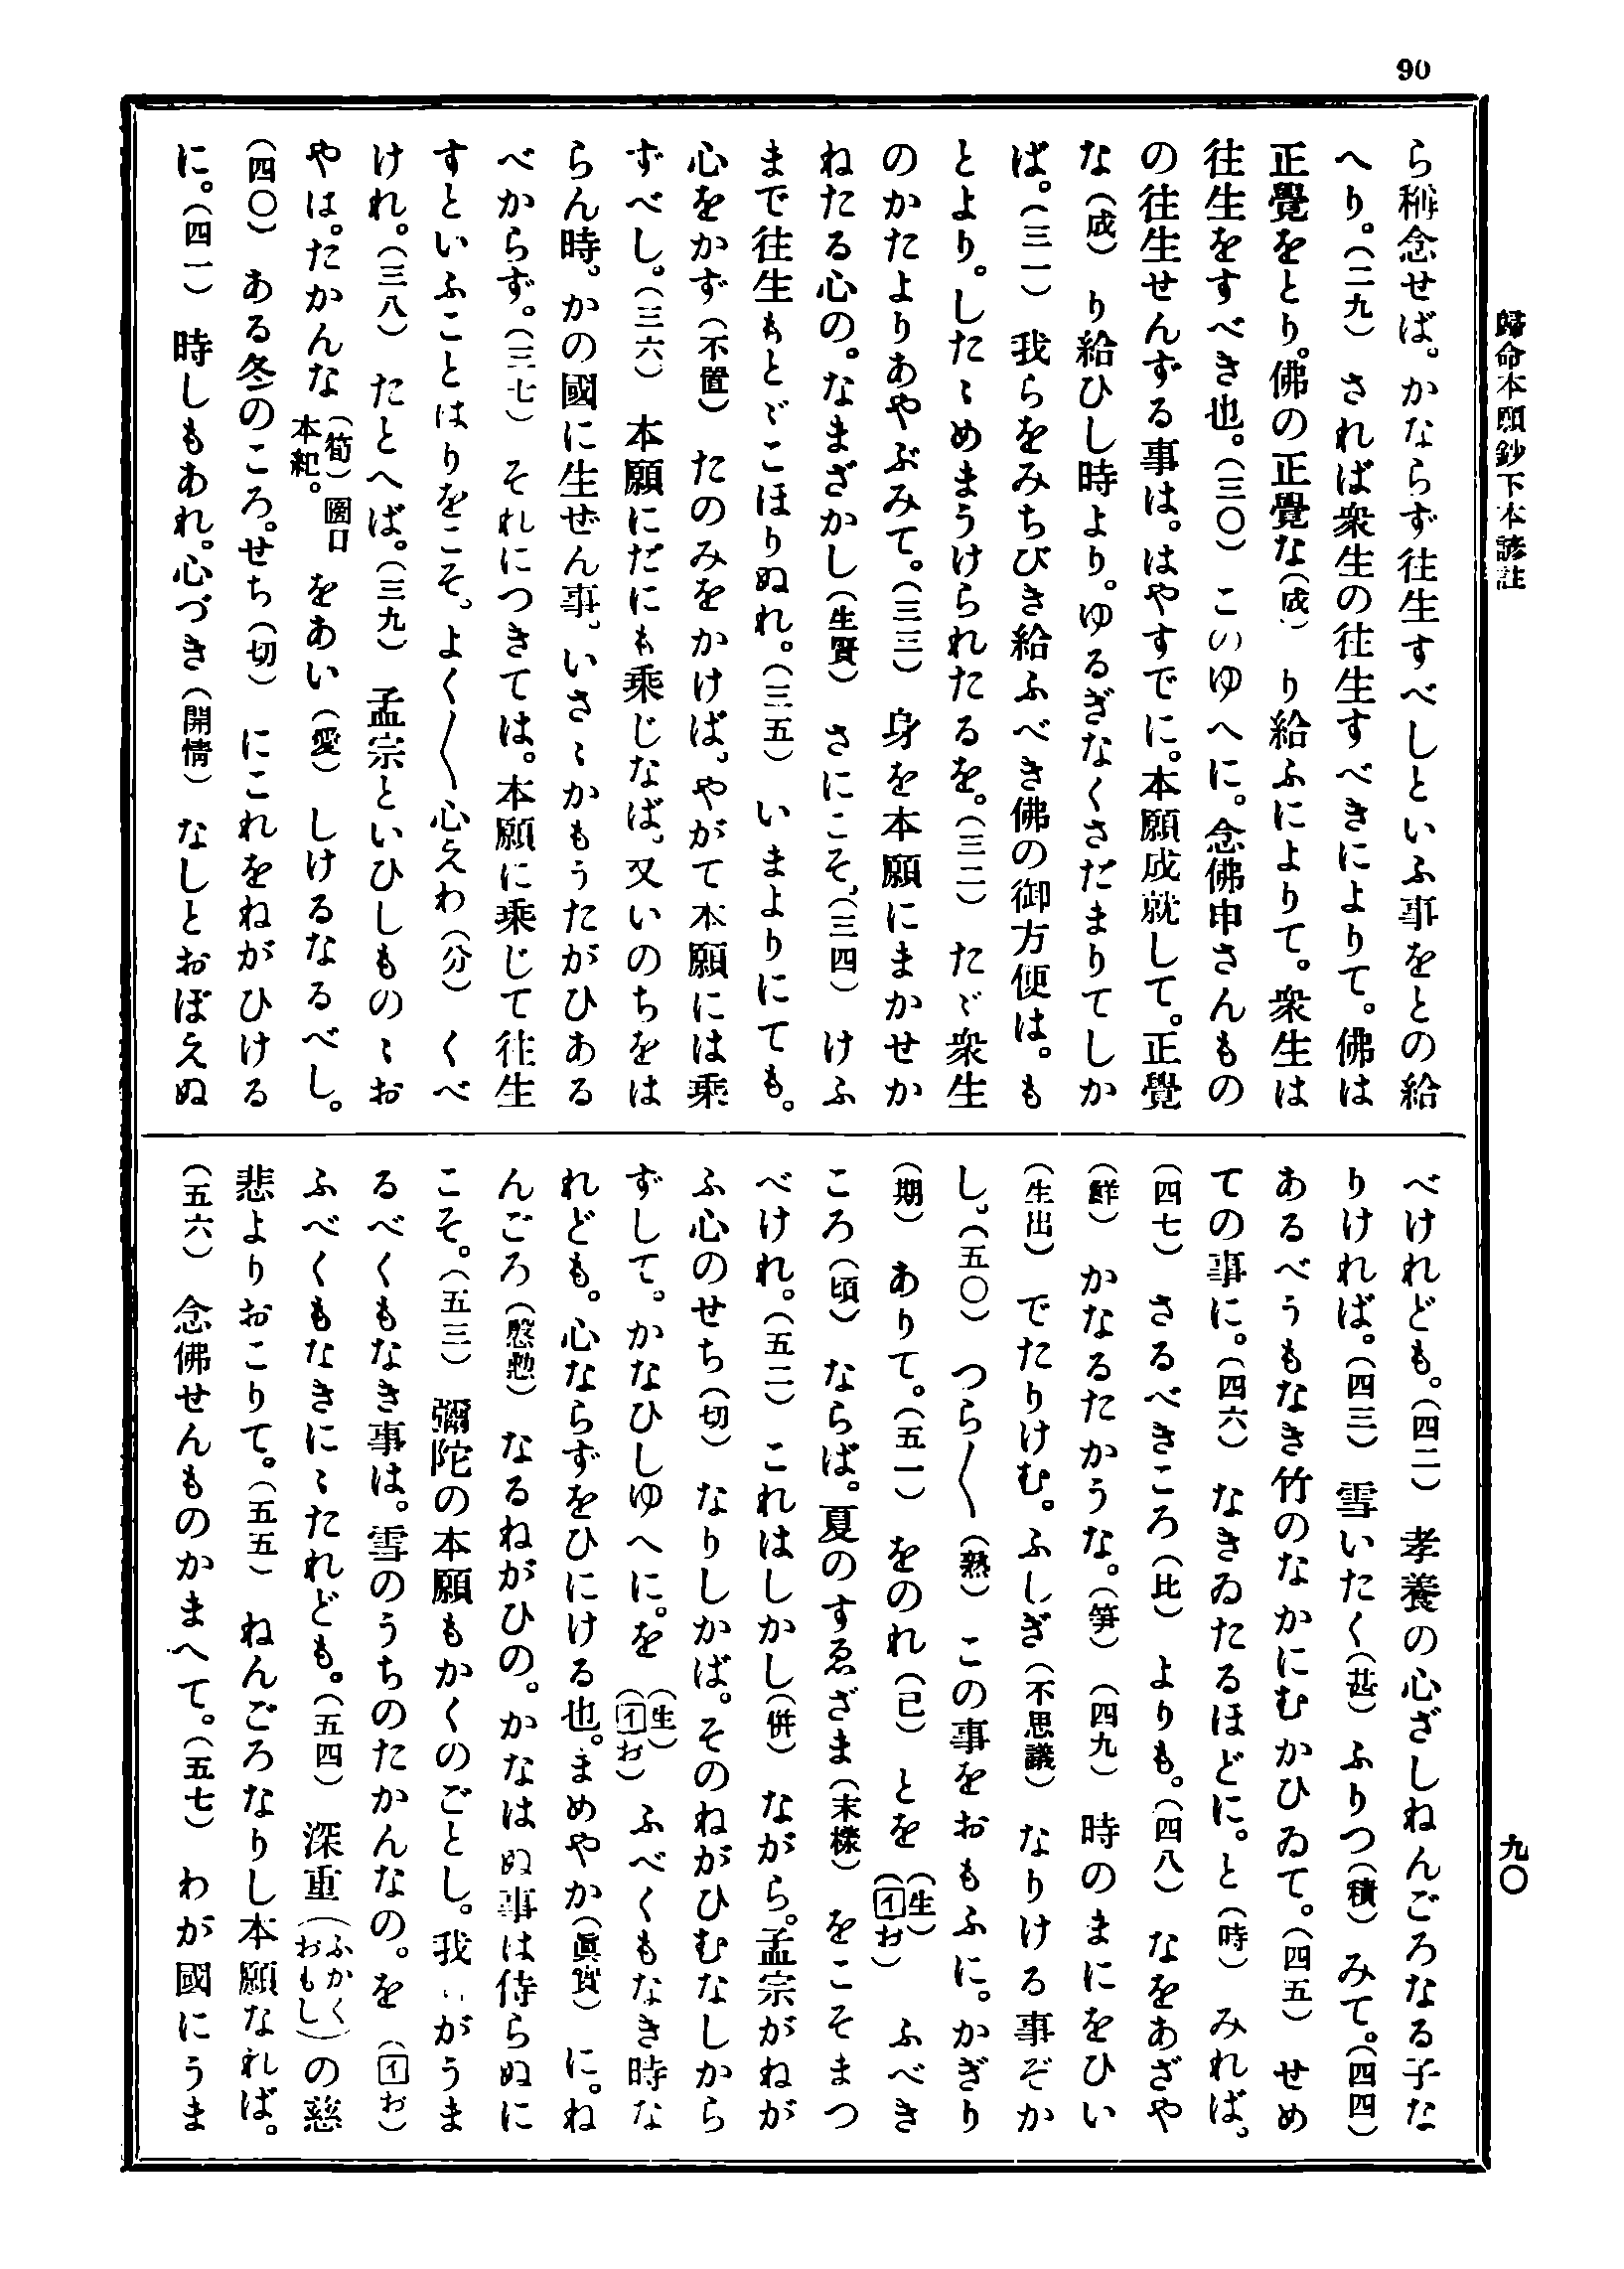 90
歸命本願鈔下本諺註
九〇
ら稱念せば。かならず往生すべしといふ事をとの給
へり。(二九) されば衆生の往生すべきによりて。佛は
正覺をとり。佛の正覺な(成) り給ふによりて。衆生は
往生をすべき也。(三〇) このゆへに。念佛申さんもの
の往生せんずる事は。はやすでに。本願成就して。正覺
な(成) り給ひし時より。ゆるぎなくさだまりてしか
ば。(三一) 我らをみちびき給ふべき佛の御方便は。も
とより。したゝめまうけられたるを。(三二) たゞ衆生
のかたよりあやぶみて。(三三) 身を本願にまかせか
ねたる心の。なまざかし(生賢) さにこそ。(三四) けふ
まで往生もとゞこほりぬれ。(三五) いまよりにても。
心をかず(不置) たのみをかけば。やがて本願には乘
ずべし。(三六) 本願にだにも乘じなば。又いのちをは
らん時。かの國に生ぜん事。いさゝかもうたがひある
べからず。(三七) それにつきては。本願に乘じて往生
すといふことはりをこそ。よく〱心えわ(分) くべ
けれ。(三八) たとへば。(三九) 孟宗といひしものゝお
やは。たかんな(筍)圀口本紀。をあい(愛) しけるなるべし。
(四〇) ある冬のころ。せち(切) にこれをねがひける
に。(四一) 時しもあれ。心づき(開情) なしとおぼえぬ
べけれども。(四二) 孝養の心ざしねんごろなる子な
りければ。(四三) 雪いたく(甚) ふりつ(積) みて。(四四)
あるべうもなき竹のなかにむかひゐて。(四五) せめ
ての事に。(四六) なきゐたるほどに。と(時) みれば。
(四七) さるべきころ(比) よりも。(四八) なをあざや
(鮮) かなるたかうな。(笋) (四九) 時のまにをひい
(生出) でたりけむ。ふしぎ(不思議) なりける事ぞか
し。(五〇) つら〱(熟) この事をおもふに。かぎり
(期) ありて。(五一) をのれ(已) とを(生)(イお) ふべき
ころ(頃) ならば。夏のすゑざま(末樣) をこそまつ
べけれ。(五二) これはしかし(併) ながら。孟宗がねが
ふ心のせち(切) なりしかば。そのねがひむなしから
ずして。かなひしゆへに。を(生)(イお) ふべくもなき時な
れども。心ならずをひにける也。まめやか(眞實) に。ね
んごろ(慇懃) なるねがひの。かなはぬ事は侍らぬに
こそ。(五三) 彌陀の本願もかくのごとし。我らがうま
るべくもなき事は。雪のうちのたかんなの。を(イお)
ふべくもなきにゝたれども。(五四) 深重(ふかくおもし)の慈
悲よりおこりて。(五五) ねんごろなりし本願なれば。
(五六) 念佛せんものかまへて。(五七) わが國にうま